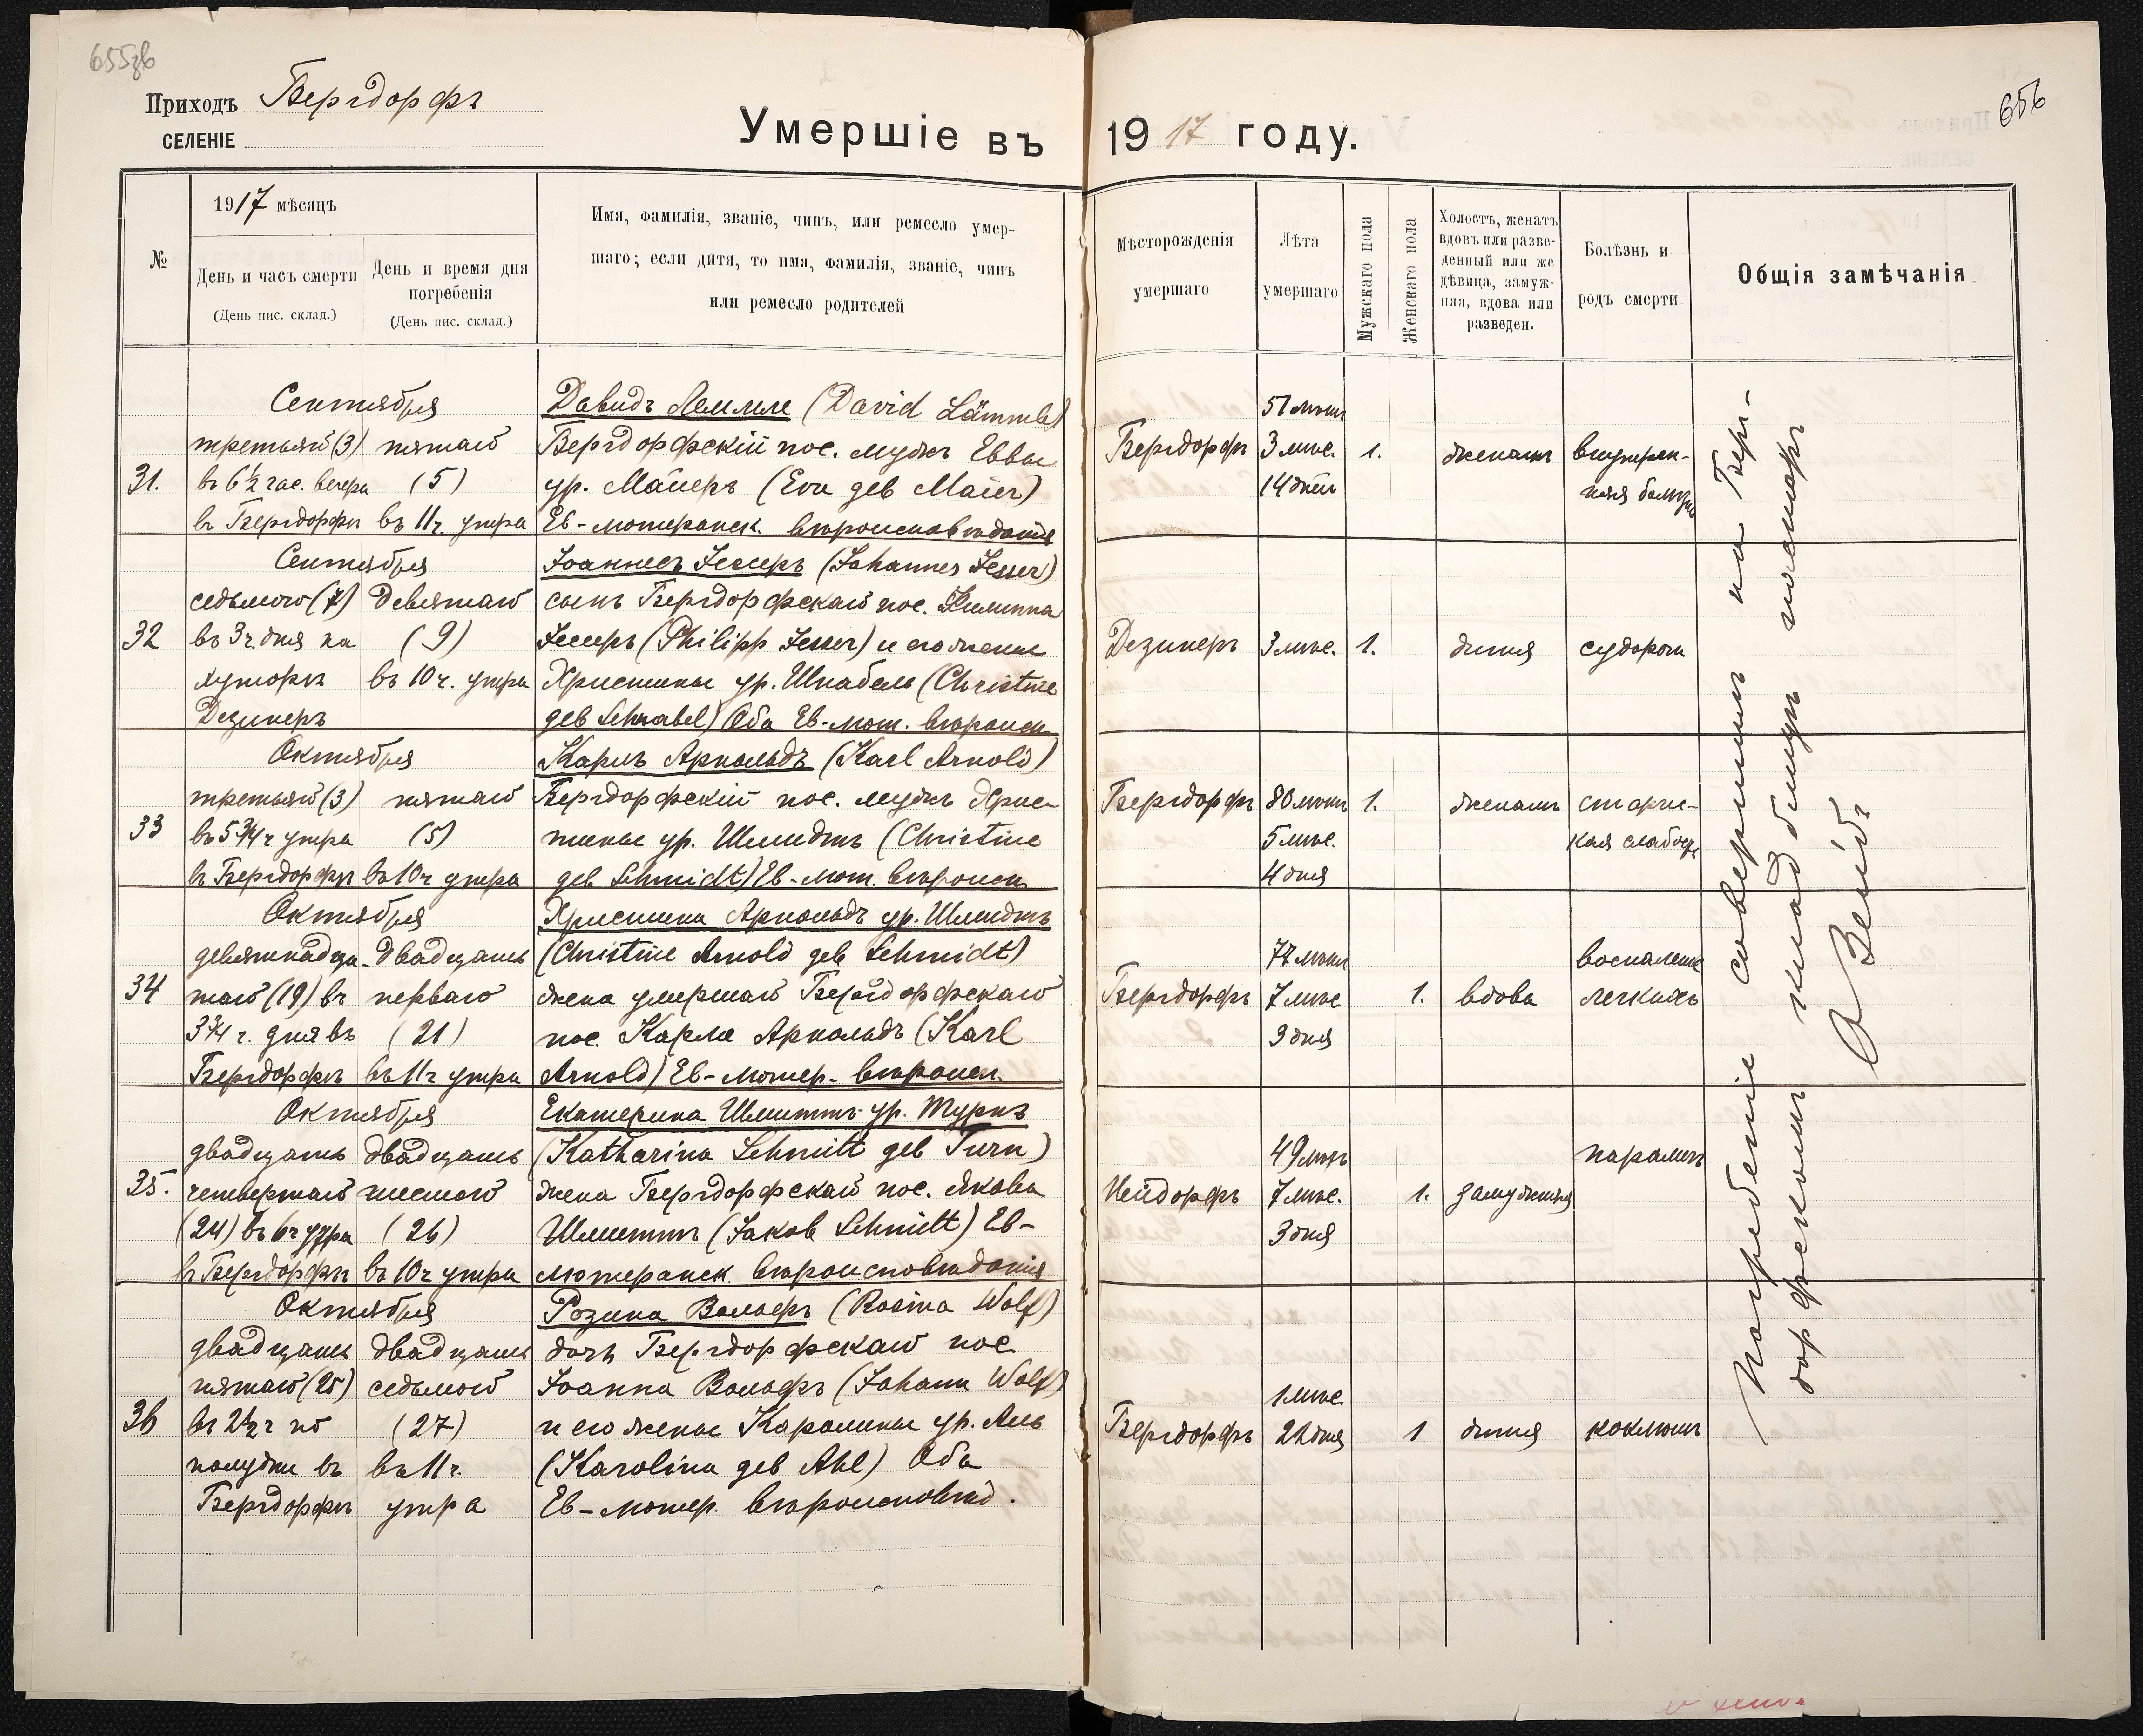 655об
656
Приходъ Бергдорфъ
СЕЛЕНІЕ
Умершіе въ 1917 году.
№
1917 мѣсяцъ
День и часъ смерти
(День пис. склад.)
День и время дня
погребенія
(День пис. склад.)
Имя, фамилія, званіе, чинъ, или ремесло умер-
шаго; если дитя, то имя, фамилія, званіе, чинъ
или ремесло родителей
Мѣсторожденія
умершаго
Лѣта
умершаго
Мужскаго пола
Женскаго пола
Холостъ, женатъ
вдовъ или разве-
денный или же
дѣвица, замуж-
няя, вдова или
разведен.
Болѣзнь и
родъ смерти
Общія замѣчанія
31.
Сентября
третьяго (3)
въ 6½ час. вечера
въ Бергдорфѣ
пятаго
(5)
въ 11 ч. утра
Давидъ Леммле (David Lämmle)
Бергдорфскій пос. мужъ Еввы
ур. Маиеръ (Eva geb Maier)
Ев-лютеранск. вѣроисповѣданія
Бергдорфъ
51 лѣтъ
3 мѣс.
14 дней
1.
женатъ
внутрен-
няя болѣзнь
32
Сентября
седьмого (7)
въ 3 ч. дня на
хуторѣ
Дезинеръ
девятаго
(9)
въ 10 ч. утра
Іоаннесъ Іессеръ (Johannes Jesser)
сынъ Бергдорфскаго пос. Филиппа
Іессеръ (Philipp Jesser) и его жены
Христины ур. Шнабель (Christine
geb Schnabel) Оба Ев-лют. вѣроисп.
Дезинеръ
3 мѣс.
1.
дитя
судороги
33
Октября
третьяго (3)
въ 5¾ ч утра
въ Бергдорфѣ
пятаго
(5)
въ 10 ч утра
Карлъ Арнольдъ (Karl Arnold)
Бергдорфскій пос. мужъ Хрис-
тины ур. Шмидтъ (Christine
geb Schmidt) Ев-лют. вѣроисп.
Бергдорфъ
80 лѣтъ
5 мѣс.
4 дня
1.
женатъ
старчес-
кая слабость
34
Октября
девятнадца-
таго (19) въ
3¾ ч. дня въ
Бергдорфѣ
двадцать
перваго
(21)
въ 11 ч утра
Христина Арнольдъ ур. Шмидтъ
(Christine Arnold geb Schmidt)
жена умершаго Бергдорфскаго
пос. Карла Арнольдъ (Karl
Arnold) Ев-лютер. вѣроисп.
Бергдорфъ
7 мѣс
9 дня
1.
вдова
воспаленіе
легкихъ
35.
Октября
двадцать
четвертаго
(24) въ 6 ч утра
въ Бергдорфѣ
двадцать
шестого
(26)
въ 10 ч утра
Екатерина Шмиттъ ур. Турнъ
(Katharina Schmitt geb Turn)
жена Бергдорфскаго пос. Якова
Шмиттъ (Jakob Schmitt) Ев-
лютеранск. вѣроисповѣданія
Нейдорфъ
49 лѣтъ
7 мѣс.
3 дня
1.
замужняя
параличъ
36
Октября
двадцать
пятаго (25)
въ 2½ ч по
полудни въ
Бергдорфѣ
двадцать
седьмого
(27)
въ 11 ч.
утра
Розина Вольфъ (Rosina Wolf)
дочь Бергдорфскаго пос
Іоанна Вольфъ (Johann Wolf)
и его жены Каролины ур. Аль
(Karolina geb Ahl) Оба
Ев-лютер. вѣроисповѣд.
Бергдорфъ
1 мѣс
22 дня
1
дитя
коклюшъ
Погребеніе совершилъ на Берг-
дорфскомъ кладбищѣ пасторъ